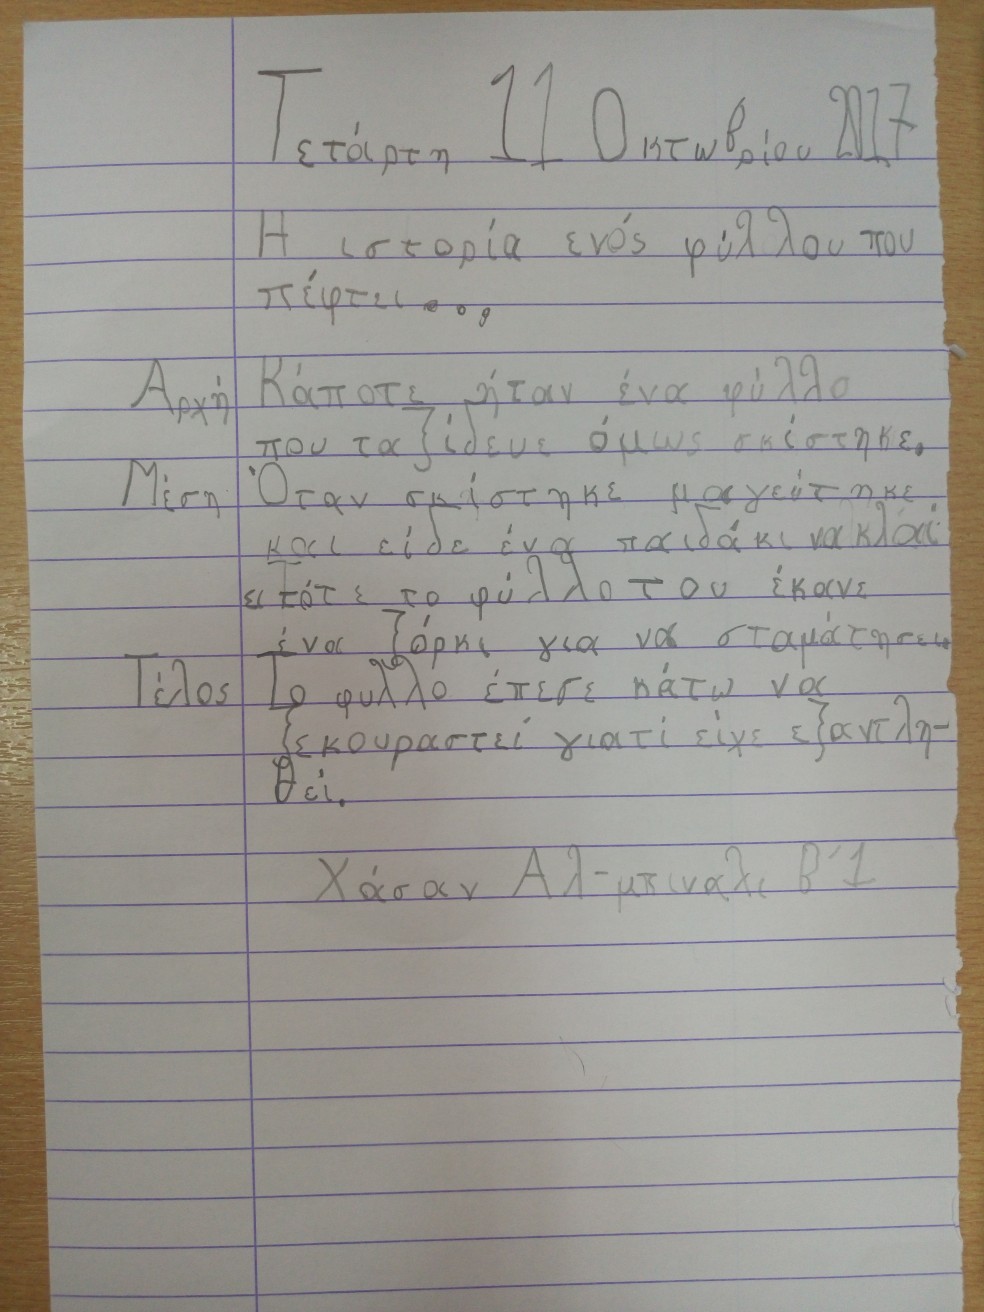 Τετάρτη 11 Οκτωβρίου 2017
Η ιστορία ενός φύλλου που
πέφτει...
Αρχή Κάποτε ήταν ένα φύλλο
που ταξίδευε όμως σκίστηκε.
Μέση Όταν σκίστηκε μαγεύτηκε
και είδε ένα παιδάκι να κλαίί
ει τότε το φύλλο του έκανε
ένα ζόρκι για να σταμάτησει
Τέλος Το φυλλο έπεσε κάτω να
ξεκουραστεί γιατί είχε εξαντλη-
θεί.
Χάσαν Αλ-μπιναλι Β'1